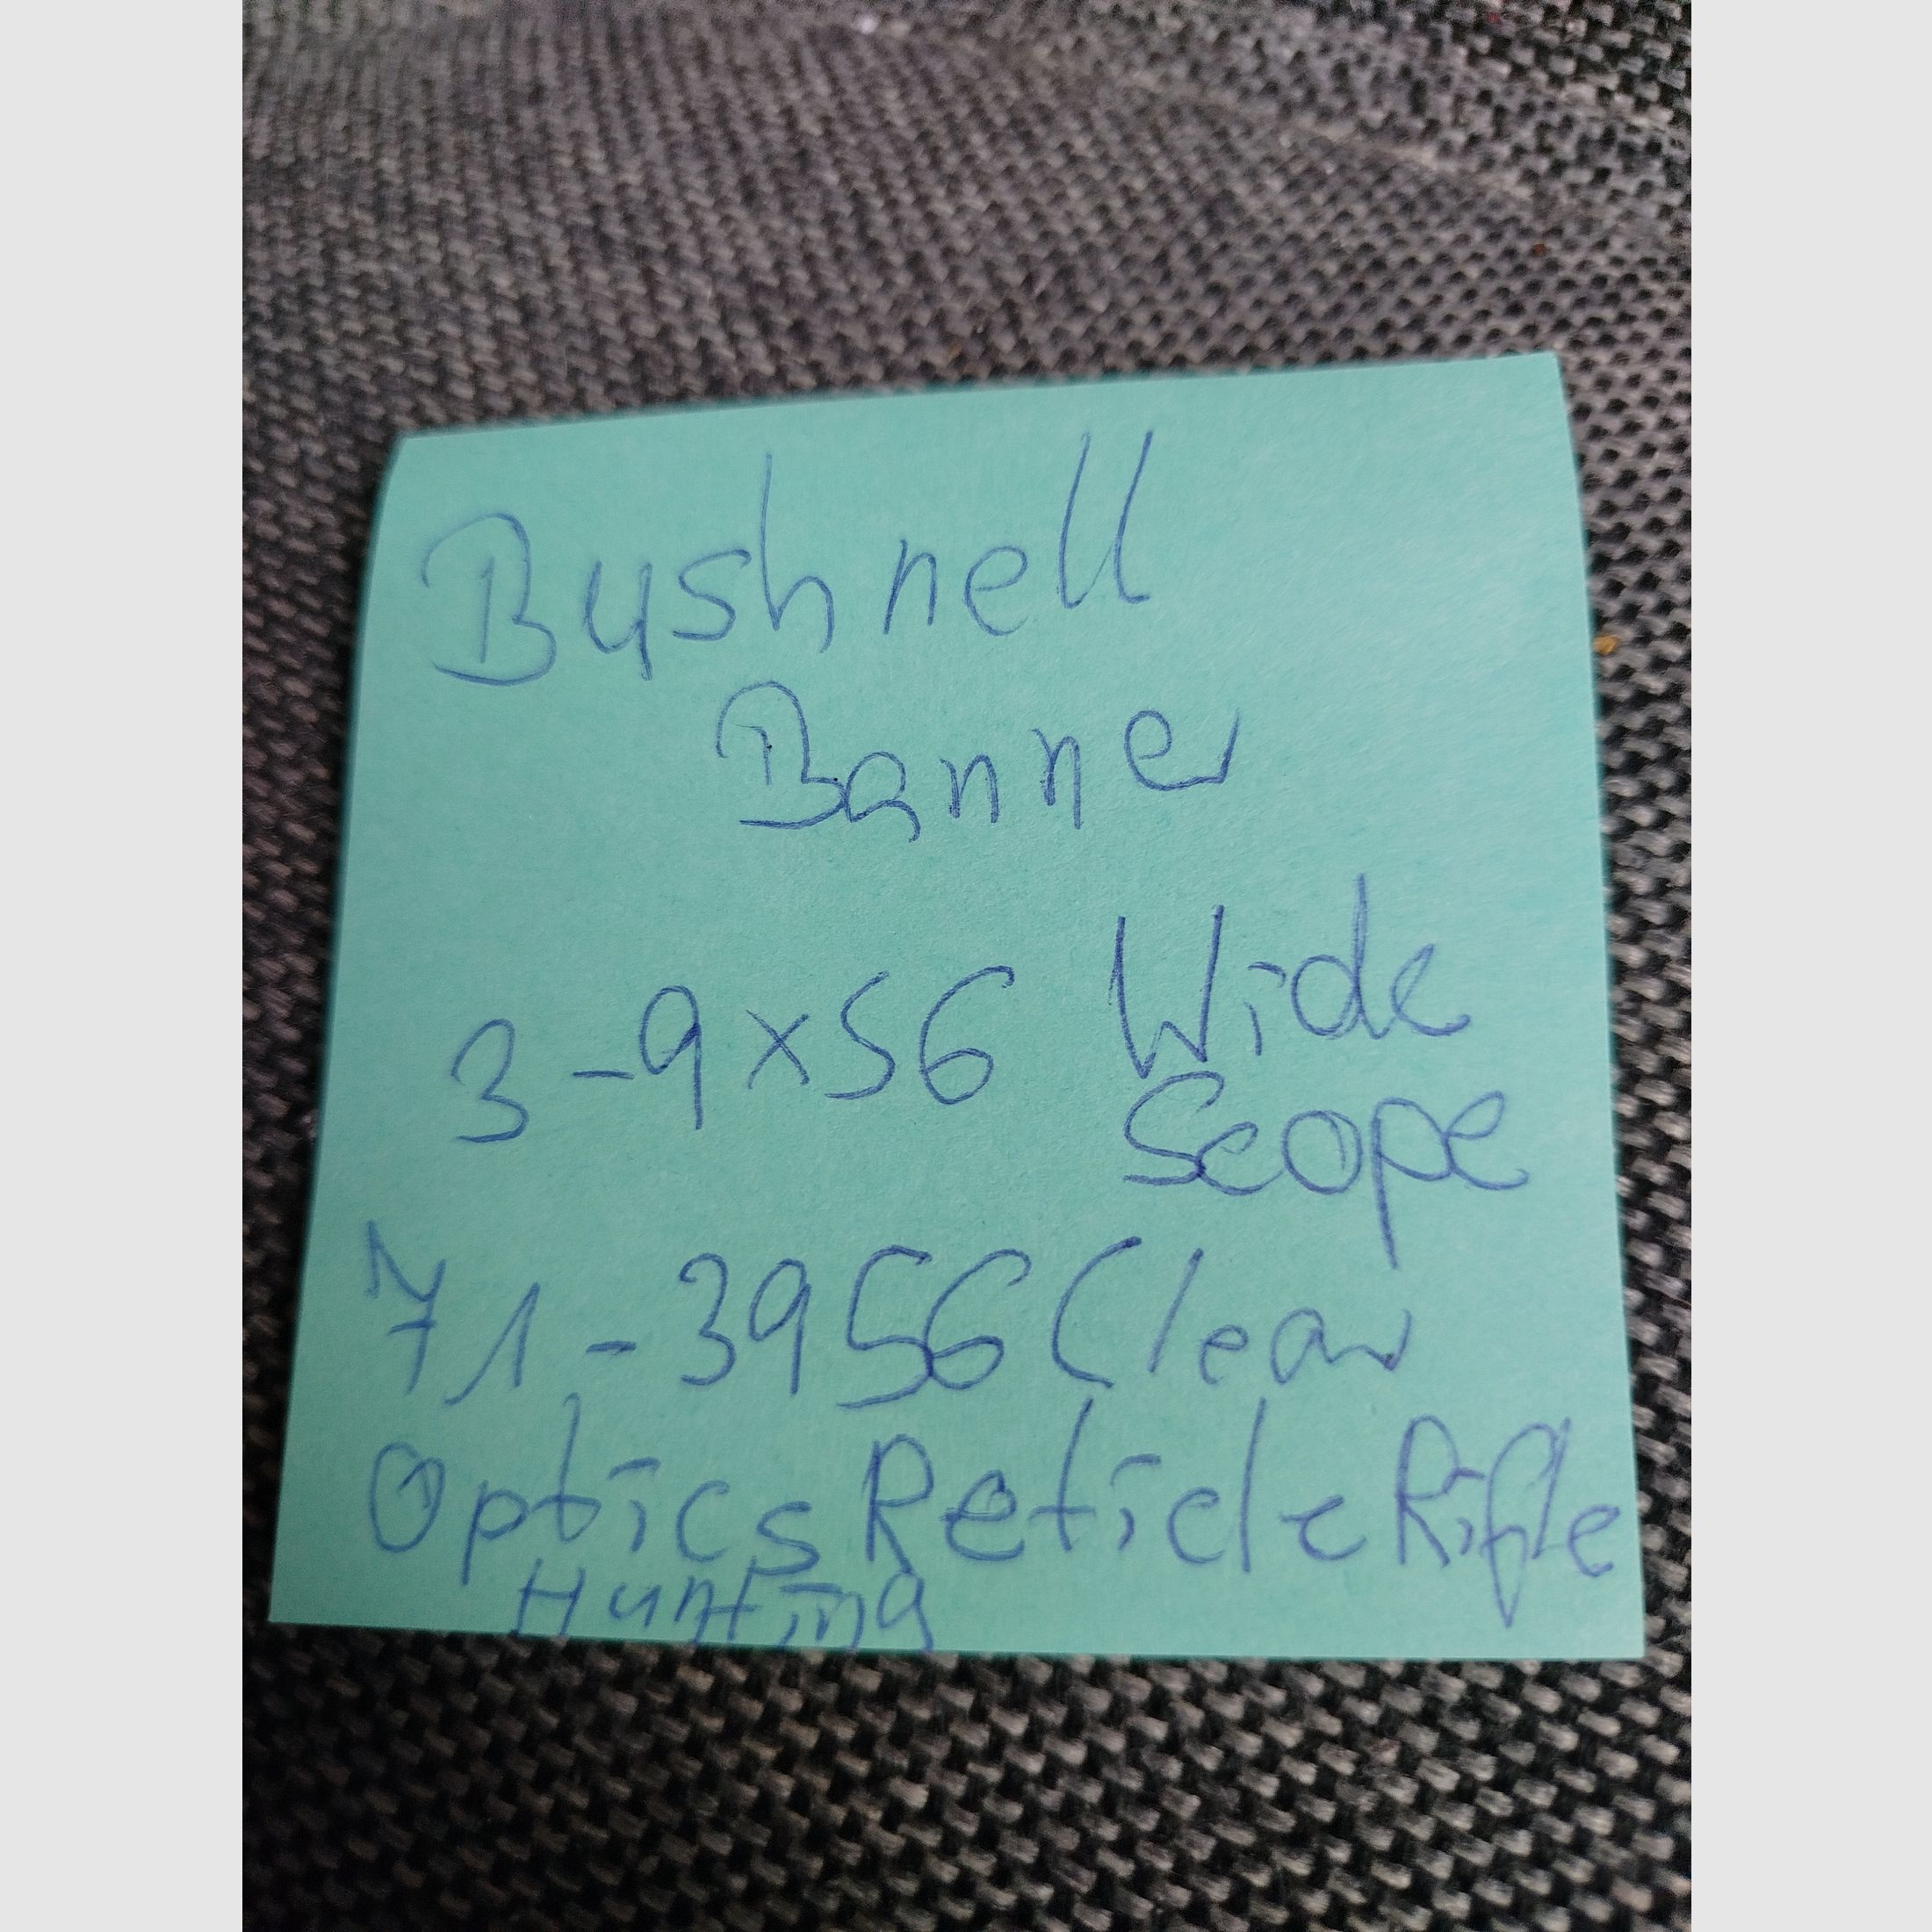 Bushnell
Banner
3-9x56 Wide
Scope
71-3956 Clear
Optics Reticle Rifle
Hunting